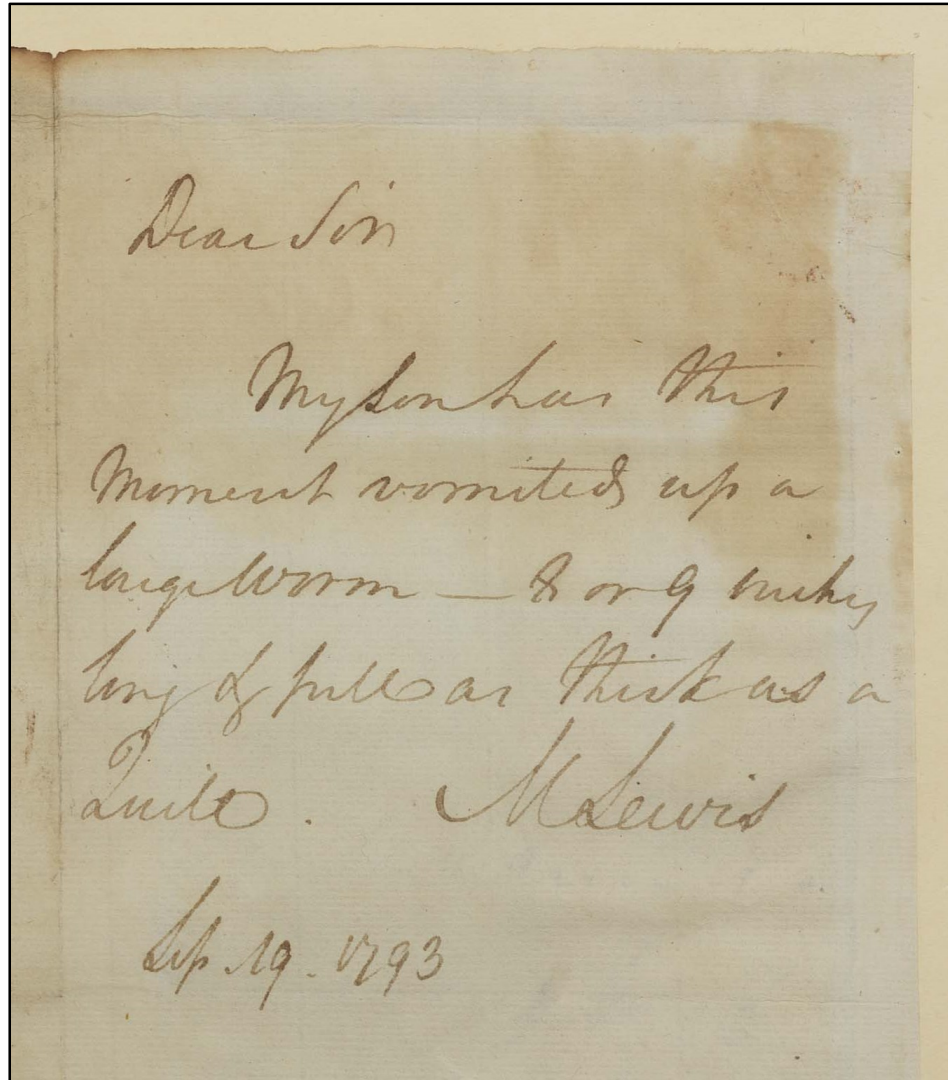 Dear Sir
My son has this
Moment vomited up a
large Worm — 8 or 9 inches
long & full as thick as a
Quill. M Lewis
Sep. 19. 1793